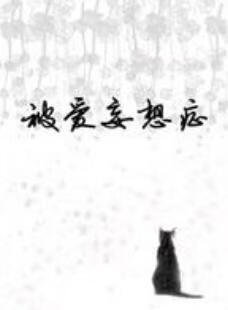 被爱妄想症